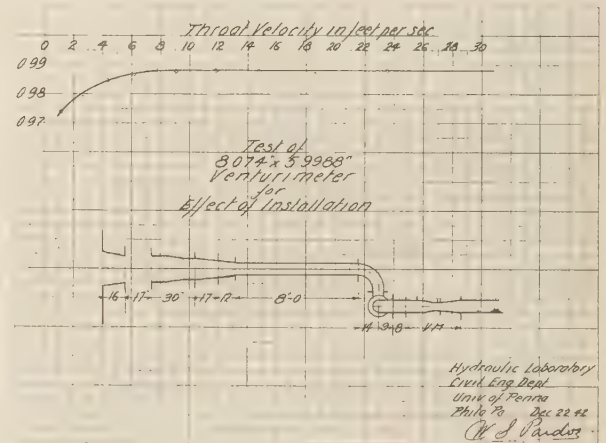 Throat Velocity in feet per sec
0 2 4 6 8 10 12 14 16 18 20 22 24 26 28 30
0.99
0.98
0.97
Test of
8.074" x 5.9988"
Venturimeter
for
Effect of Installation
16" 17" 30" 17" 12" 8'-0
14 9 8 V.M.
Hydraulic Laboratory
Civil Eng Dept
Univ of Penna
Phila Pa Dec 22 42
W. S. Pardoe